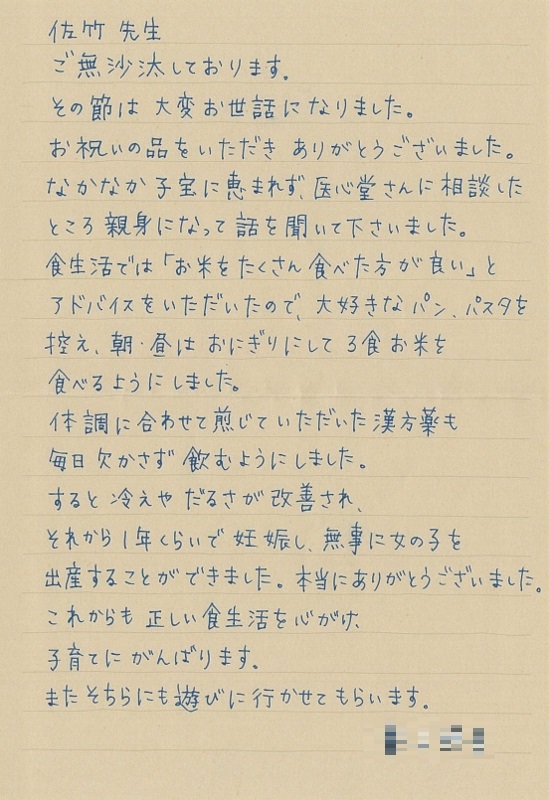 佐竹 先生
ご無沙汰しております。
その節は 大変お世話になりました。
お祝いの品をいただき ありがとうございました。
なかなか 子宝に恵まれず、医心堂さんに相談した
ところ 親身になって 話を聞いて下さいました。
食生活では「お米をたくさん食べた方が良い」と
アドバイスをいただいたので、大好きなパン、パスタを
控え、朝・昼は おにぎりにして 3食お米を
食べるようにしました。
体調に合わせて煎じていただいた漢方薬も
毎日欠かさず 飲むようにしました。
すると 冷えや だるさが 改善され、
それから 1年くらいで 妊娠し、無事に女の子を
出産することができました。本当にありがとうございました。
これからも 正しい食生活を心がけ、
子育てに がんばります。
またそちらにも遊びに行かせてもらいます。